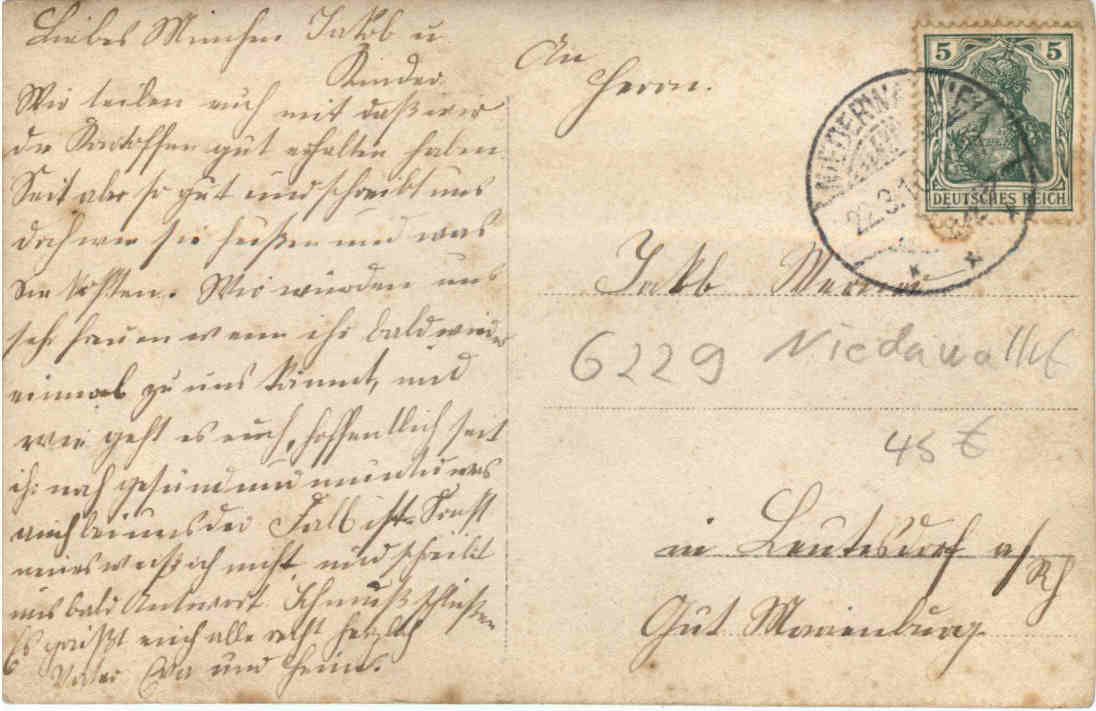 Liebes Minchen Jakob u
Kinder
Wir teilen euch mit daß wir
die Kartoffen gut erhalten haben
Seit aber so gut und schreibt uns
doch was sie heißen und was
Sie kosten. Wir würden uns
sehr freuen wenn ihr bald wieder
einmal zu uns kämmt, und
wie geht es euch, hoffendlich seit
ihr noch gesund und munter was
auch bei uns der Fall ist. Sonst
neues weiß ich nicht und schreibt
uns bald Antwort. Ich muß schließen
Es grüßt euch alle recht herzlich
Vater und Heini.
An
Herrn.
Jakb
6229 Niederwalluf
45 €
in Leutesdorf a/Rh
Gut Marienburg
5 5
DEUTSCHES REICH
NIEDERWALLUF
22.3.1